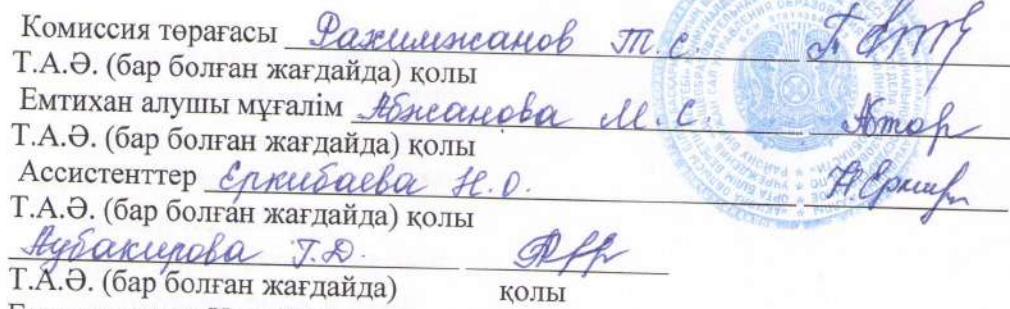 Комиссия төрағасы Рахимжанов Т. С.
Т.А.Ә. (бар болған жағдайда) қолы
Емтихан алушы мұғалім Абжанова М. С.
Т.А.Ә. (бар болған жағдайда) қолы
Ассистенттер Еркибаева Н. О.
Т.А.Ә. (бар болған жағдайда) қолы
Аубакирова Г. Д.
Т.А.Ә. (бар болған жағдайда) қолы